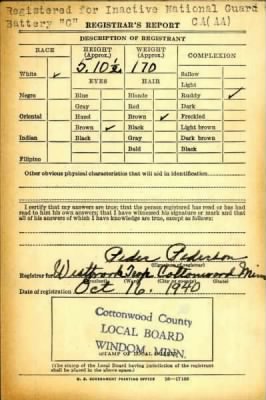 Registered for Inactive National Guard
Battery "C" CA(AA)
REGISTRAR'S REPORT
DESCRIPTION OF REGISTRANT
RACE HEIGHT (Approx.) WEIGHT (Approx.) COMPLEXION
White ✓ 5.10½ 170 Sallow
EYES HAIR Light
Negro Blue Blonde Ruddy ✓
Gray Red Dark
Oriental Hazel Brown ✓ Freckled
Brown ✓ Black Light brown
Indian Black Gray Dark brown
Bald Black
Filipino
Other obvious physical characteristics that will aid in identification
I certify that my answers are true; that the person registered has read or has
had read to him his own answers; that I have witnessed his signature or mark and that
all of his answers of which I have knowledge are true, except as follows:
Peder Pederson
(Signature of registrar)
Registrar for Westbrook Twp. Cottonwood Minn
(Precinct) (Ward) (City or county) (State)
Date of registration Oct 16, 1940
Cottonwood County
LOCAL BOARD
WINDOM, MINN.
(STAMP OF LOCAL BOARD)
(The stamp of the Local Board having jurisdiction of the registrant
shall be placed in the above space.)
U. S. GOVERNMENT PRINTING OFFICE 16—17105